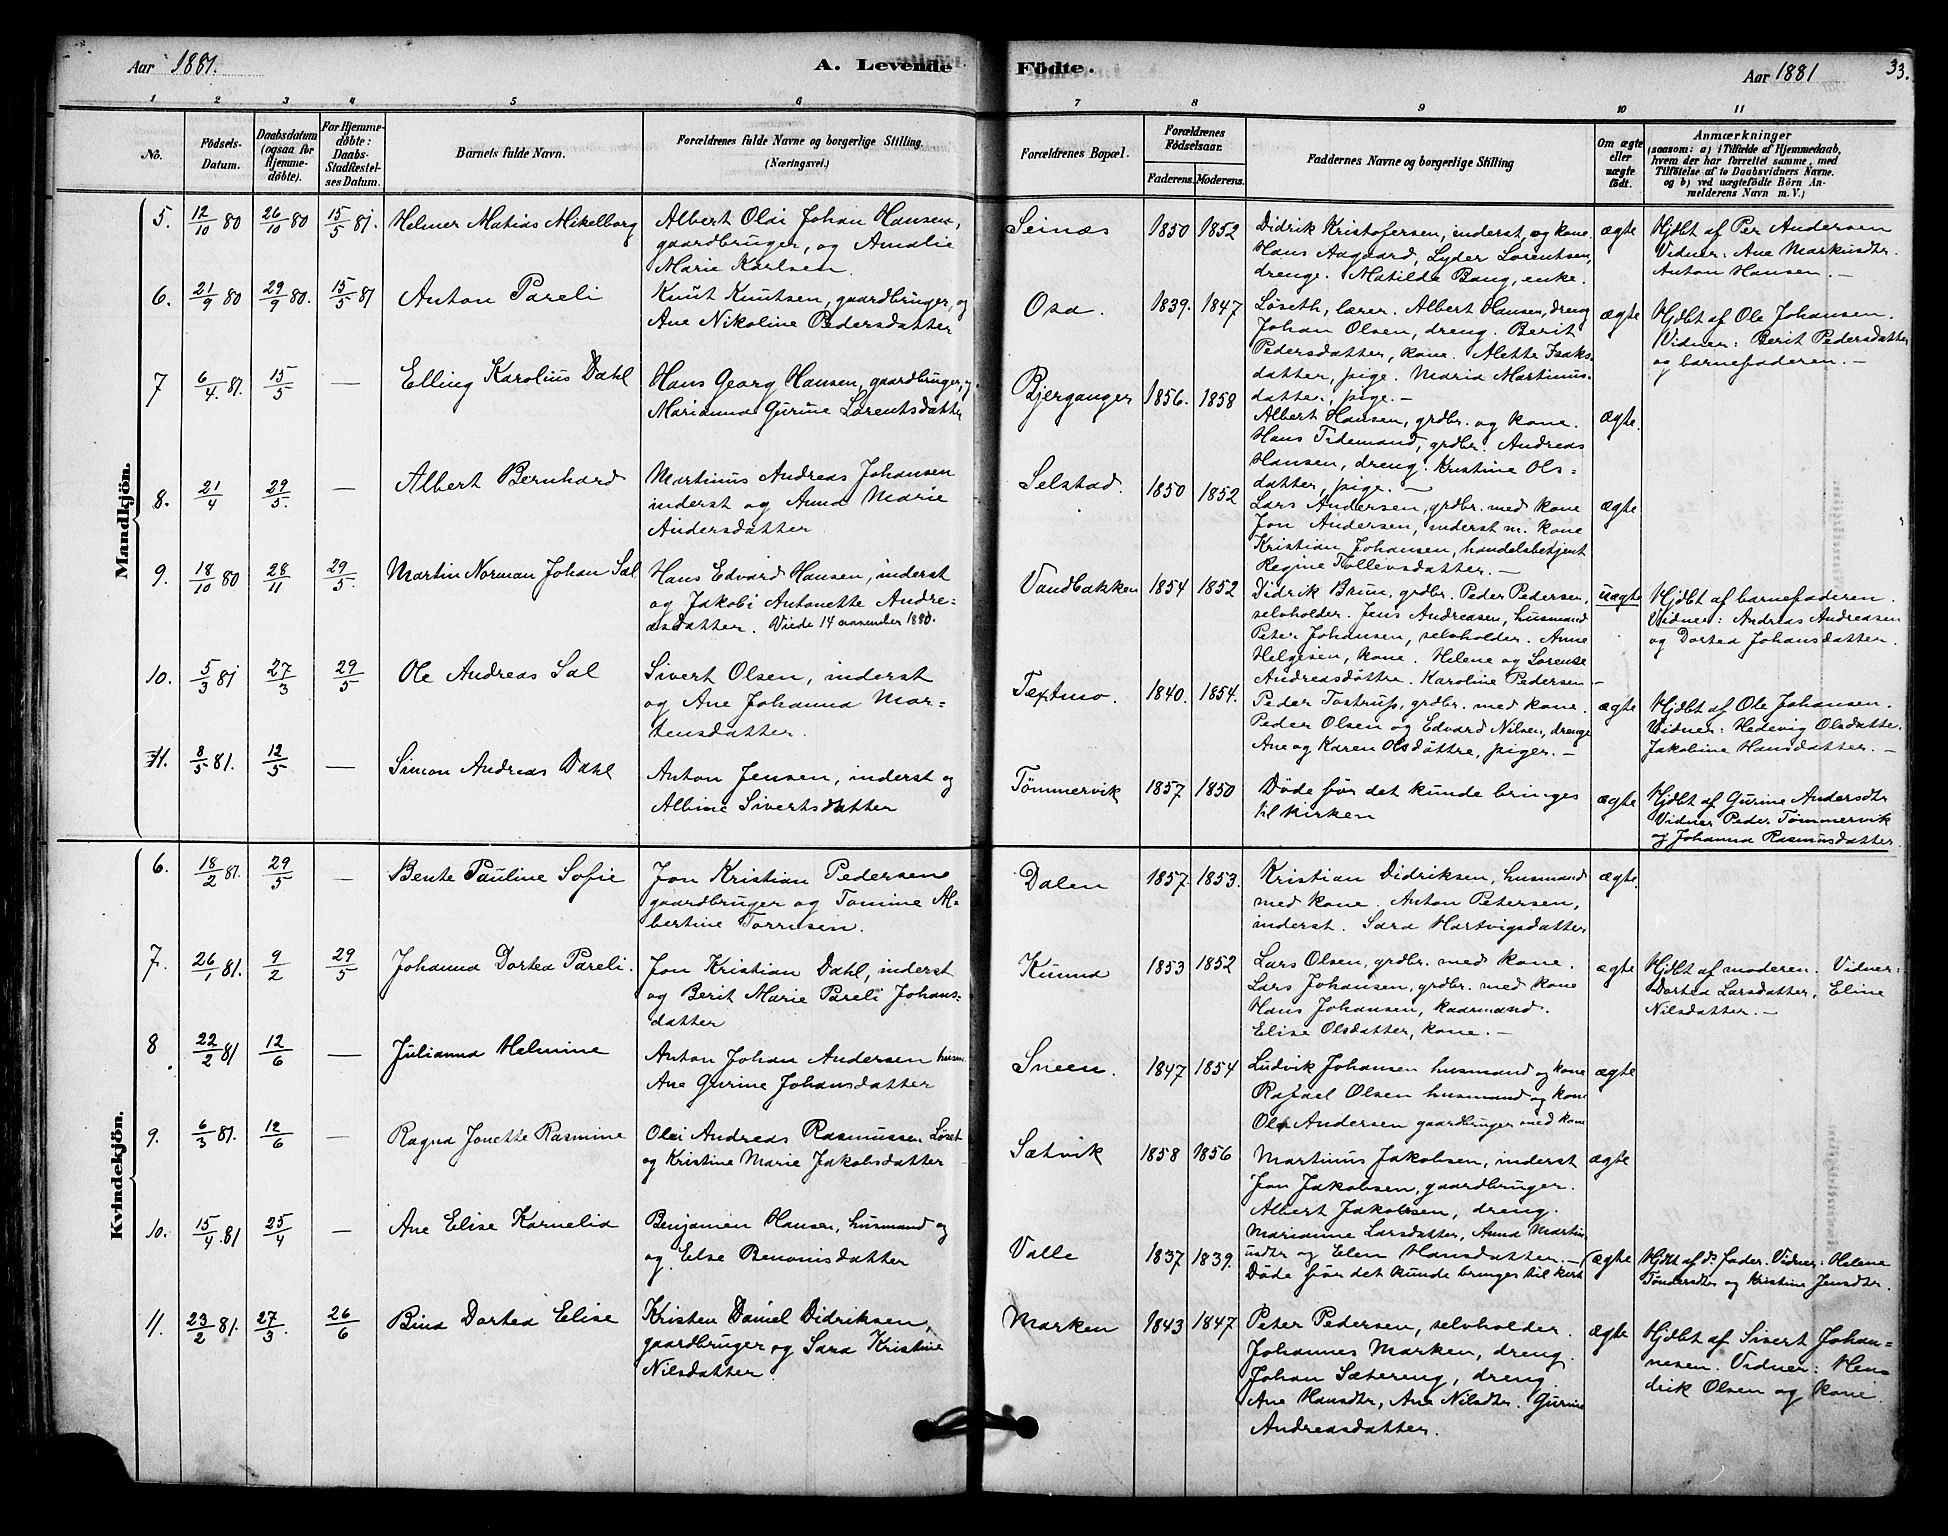 Aar 1881.
A. Levende Födte.
Aar 1881
33.
1 2 3 4 5 6 7 8 9 10 11
No.
Födsels-
Datum.
Daabsdatum
(ogsaa for
Hjemme-
döbte).
For Hjemme-
döbte:
Daabs-
Stadfæstel-
ses Datum.
Barnets fulde Navn.
Forældrenes fulde Navne og borgerlige Stilling
(Næringsvei.)
Forældrenes Bopæl.
Forældrenes
Födselsaar.
Faderens. Moderens.
Faddernes Navne og borgerlige Stilling
Om ægte
eller
uægte
födt.
Anmærkninger
(saasom: a) i Tilfælde af Hjemmedaab,
hvem der har forrettet samme, med
Tilföielse af to Daabsvidners Navne.
og b) ved uægtefödte Börn An-
melderens Navn m. V.)
Mandkjön.
5. 12/10 80 26/10 80 15/5 81. Helmer Matias Mikelborg
Albert Olai Johan Hansen,
gaardbruger, og Amalie
Marie Karlsen.
Seinæs 1850 1852
Didrik Kristofersen, inderst og kone.
Hans Aagaard, Lyder Lorentsen,
drenge. Matilde Bang, enke.
ægte
Hjdbt af Per Andersen
Vidner: Ane Markusdtr.
Anton Hansen. —
6. 21/9 80 29/9 80. 15/5 81 Anton Pareli
Knut Knutsen, gaardbruger, og
Ane Nikoline Pedersdatter
Osa. 1839. 1847
Løseth, lærer. Albert Hansen, dreng
Johan Olsen, dreng. Berit
Pedersdatter, kone. Alette Isaks-
datter, pige. Maria Martinus-
datter, pige. —
ægte
Hjdbt af Ole Johansen.
Vidner: Berit Pedersdatter
og barnefaderen. —
7 6/4 81. 15/5 — Elling Karolius Dahl
Hans Georg Hansen, gaardbruger, og
Marianna Gurine Lorentsdatter
Bjerganger 1856. 1858
Albert Hansen, grdbr. og kone.
Hans Tidemand, grdbr. Andreas
Hansen, dreng. Kristine Ols-
datter, pige. —
ægte.
8. 21/4 29/5. — Albert Bernhard
Martinus Andreas Johansen
inderst og Anna Marie
Andersdatter
Selstad. 1850 1852
Lars Andersen, grdbr. med kone
Jon Andersen, inderst m. kone
Kristian Johansen, handelsbetjent
Regine Tollevsdatter. —
ægte
9. 18/10 80 28/11 29/5. Martin Norman Johan Sal
Hans Edvard Hansen, inderst
og Jakobi Antonette Andre-
asdatter. Viede 14 november 1880.
Vandbakken 1854 1852
Didrik Brun, grdbr. Peder Pedersen,
selvholder. Jens Andreasen, husmand
Peter Johansen, selvholder. Anne
Helgesen, kone. Helene og Lorense
Andreasdøttre. Karoline Pedersen —
uægte
Hjdbt af barnefaderen.
Vidner: Andreas Andreasen
og Dortea Johansdatter.
10. 5/3 81 27/3 29/5 Ole Andreas Sal
Sivert Olsen, inderst
og Ane Johanna Mor-
tensdatter.
Textmo. 1840. 1854.
Peder Tostrup, grdbr. med kone.
Peder Olsen og Edvard Nilsen, drenge
Ane og Karen Olsdøttre, piger. —
ægte
Hjdbt af Ole Johansen.
Vidner: Hedevig Olsdatte.
Jakoline Hansdatter. —
11. 8/5 81. 12/5 — Simon Andreas Dahl
Anton Jensen, inderst og
Albine Sivertsdatter
Tømmervik 1857. 1850
Døde før det kunde bringes
til kirken
ægte
Hjdbt af Gurine Andersdtr
Vidner Peder Tømmervik
og Johanna Rasmusdatter
Kvindekjön.
6. 18/2 81. 29/5 — Bente Pauline Sofie
Jon Kristian Pedersen
gaardbruger og Tomine Al-
bertine Torrisen.
Dalen 1857. 1853.
Kristian Didriksen, husmand
med kone. Anton Petersen,
inderst. Sara Hartvigsdatter
ægte.
7. 26/1 81. 9/2 29/5 Johanna Dortea Pareli.
Jon Kristian Dahl, inderst
og Berit Marie Pareli Johans-
datter
Kunna 1853 1852
Lars Olsen, grdbr. med kone.
Lars Johansen, grdbr. med kone
Hans Johansen, kaarmand.
Elise Olsdatter, kone. —
ægte
Hjdbt af moderen. Vidner:
Dortea Larsdatter, Eline
Nilsdatter. —
8 22/2 81 12/6 — Julianna Helmine
Anton Johan Andersen husm.
Ane Gurine Johansdatter
Sneen. 1847 1854
Ludvik Johansen husmand og kone
Rafael Olsen husmand og kone
Ole Andersen gaardbruger med kone
ægte
9. 6/3 81. 12/6 — Ragna Jonette Rasmine
Olai Andreas Rasmussen Løset
og Kristine Marie Jakobsdatter
Sætvik 1858 1856
Martinus Jakobsen, inderst
Jon Jakobsen, gaardbruger.
Albert Jakobsen, dreng.
Marianne Larsdatter, Anna Martin
usdtr og Elen Hansdatter. —
ægte
10. 15/4 81 25/4 — Ane Elise Kornelia
Benjamin Hansen, husmand og
og Else Benonisdatter
Valle 1837 1839.
Døde før det kunde bringes til kirk
ægte
Hjdbt af ds fader. Vidner: Helene
Tøndersdtr og Kristine Jensdtr.
11. 23/2 81. 27/3. 26/6 Bina Dortea Elise
Kristen Daniel Didriksen,
gaardbruger og Sara Kristine
Nilsdatter.
Marken 1843 1847
Peter Pedersen, selvholder.
Johannes Marken, dreng.
Johan Sætereng, dreng.
Ane Hansdtr, Ane Nilsdtr. Gurine
Andreasdatter.
ægte
Hjdbt af Sivert Johan-
nesen. Vidner: Hen-
drik Olsen og kone